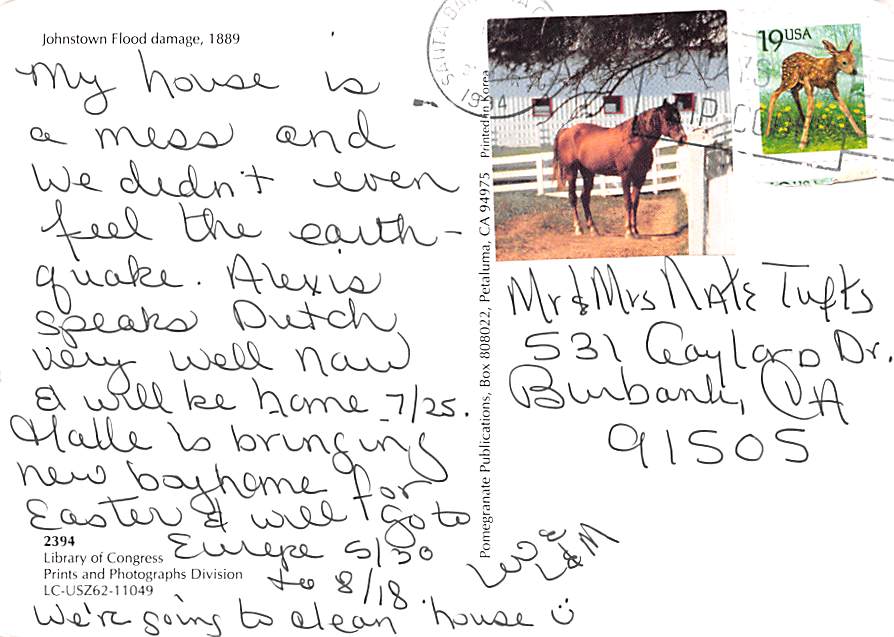 Johnstown Flood damage, 1889
My house is
a mess and
We didn't even
feel the earth-
quake. Alexis
speaks Dutch
very well now
& will be home 7/25.
Halle is bringing
new boy home for
Easter & will go to
Europe 5/30
to 8/18.
We're going to clean house
2394
Library of Congress
Prints and Photographs Division
LC-USZ62-11049
Pomegranate Publications, Box 808022, Petaluma, CA 94975 Printed in Korea
SANTA
1994
19 USA
Mr & Mrs Nate Tufts
531 Gaylord Dr.
Burbank, CA
91505
Love
L&M